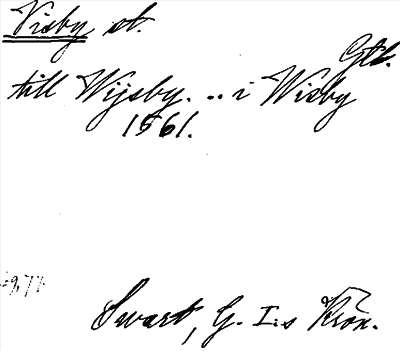 Visby st.
Gtl.
till Wijsby. .. i Wisby
1561.
Swart, G. I:s Krön.